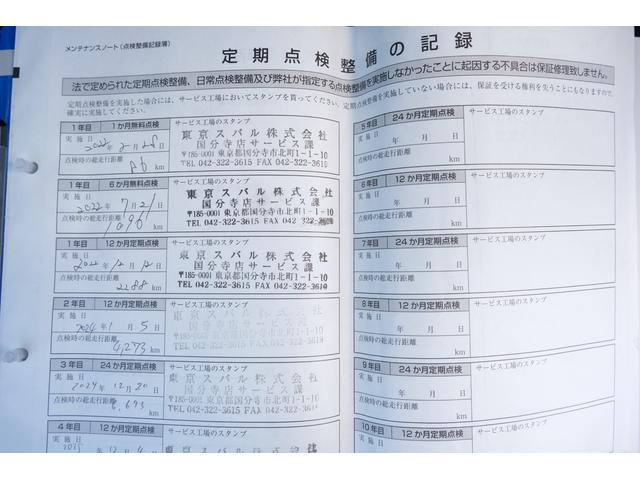 メンテナンスノート(点検整備記録簿)
定期点検整備の記録
法で定められた定期点検整備、日常点検整備及び弊社が指定する点検整備を実施しなかったことに起因する不具合は保証修理致しません。
定期点検整備を実施した場合には、サービス工場においてスタンプを貰ってください。定期点検整備を実施していない場合には、保証を受ける権利を失うこともなりますので、
確実に実施してください。
1年目 1か月無料点検 サービス工場のスタンプ
実施日 2022年2月28日
点検時の総走行距離
86 km
東京スバル株式会社
国分寺店サービス課
〒185-0001 東京都国分寺市北町1-1-10
TEL 042-322-3615 FAX 042-322-3
1年目 6か月無料点検 サービス工場のスタンプ
実施日 2022年7月21日
点検時の総走行距離
1090 km
東京スバル株式会社
国分寺店サービス課
〒185-0001 東京都国分寺市北町1-1-10
TEL 042-322-3615 FAX 042-322-
1年目 12か月定期点検 サービス工場のスタンプ
実施日 2022年12月12日
点検時の総走行距離
2288 km
東京スバル株式会社
国分寺店サービス課
〒185-0001 東京都国分寺市北町1-1-10
TEL 042-322-3615 FAX 042-322-3615
2年目 12か月定期点検 サービス工場のスタンプ
実施日 2024年1月5日
点検時の総走行距離
4,273 km
東京スバル株式会社
国分寺店サービス課
〒185-0001 東京都国分寺市北町1-1-10
TEL 042-322-3615 FAX 042-322-3615
3年目 24か月定期点検 サービス工場のスタンプ
実施日 2024年12月20日
点検時の総走行距離
6,693 km
東京スバル株式会社
国分寺店サービス課
〒185-0001 東京都国分寺市北町1-1-10
TEL 042-322-3615 FAX 042-322-3615
4年目 12か月定期点検 サービス工場のスタンプ
実施日
2025年12月
東京スバル株式会社
5年目 24か月定期点検 サービス工場のスタンプ
実施日 年 月 日
点検時の総走行距離
km
6年目 12か月定期点検 サービス工場のスタンプ
実施日 年 月 日
点検時の総走行距離
km
7年目 24か月定期点検 サービス工場のスタンプ
実施日 年 月 日
点検時の総走行距離
km
8年目 12か月定期点検 サービス工場のスタンプ
実施日 年 月 日
点検時の総走行距離
km
9年目 24か月定期点検 サービス工場のスタンプ
実施日 年 月 日
点検時の総走行距離
km
10年目 12か月定期点検 サービス工場のスタンプ
実施日 年 月 日